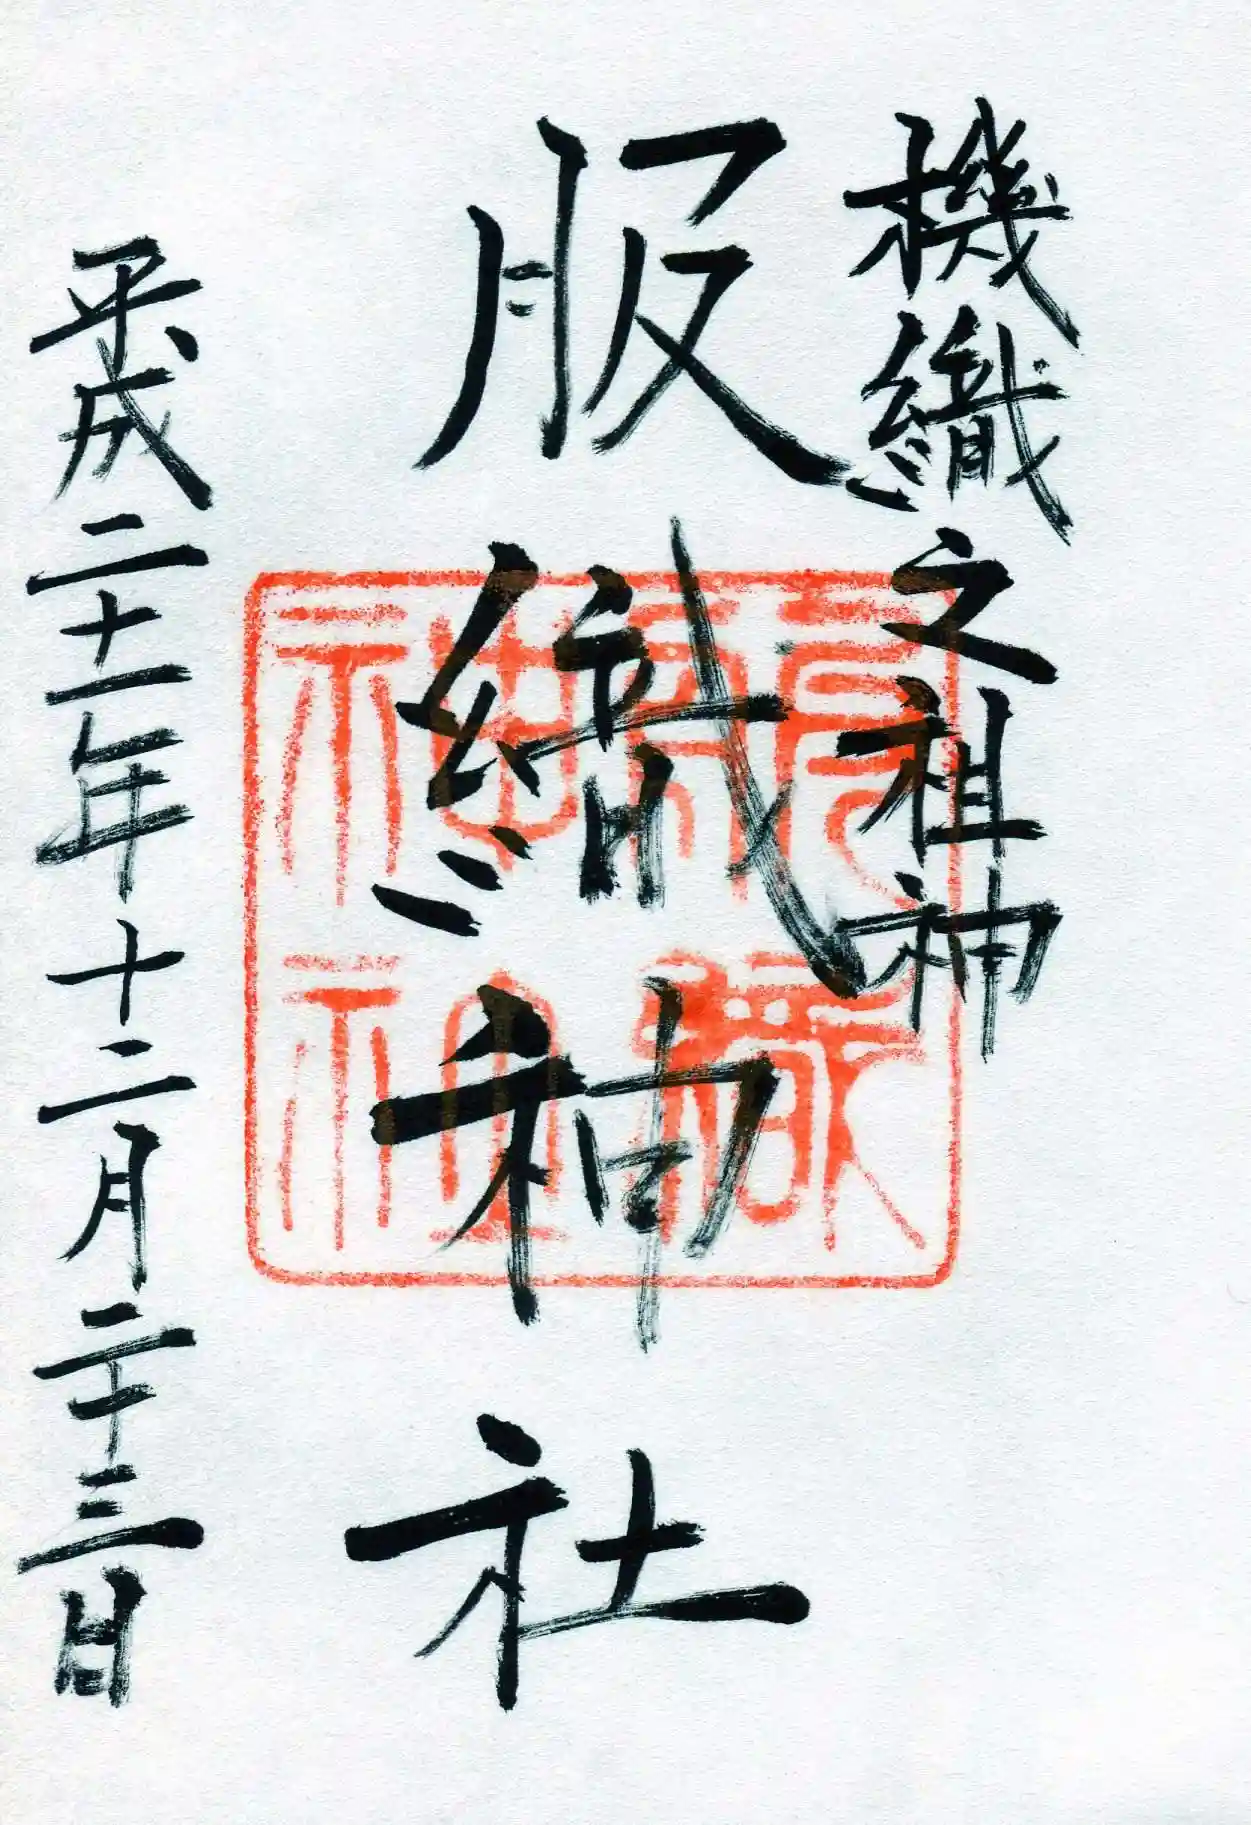 機織之祖神
服織神社
平成二十一年十二月二十三日
服織
神社